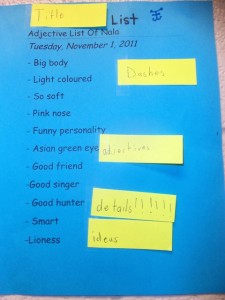 Title
List
Adjective List Of Nala
Tuesday, November 1, 2011
- Big body
- Light coloured
Dashes
- So soft
- Pink nose
- Funny personality
- Asian green eye
adjectives
- Good friend
-Good singer
- Good hunter
details!!!!!!!
- Smart
-Lioness
ideas